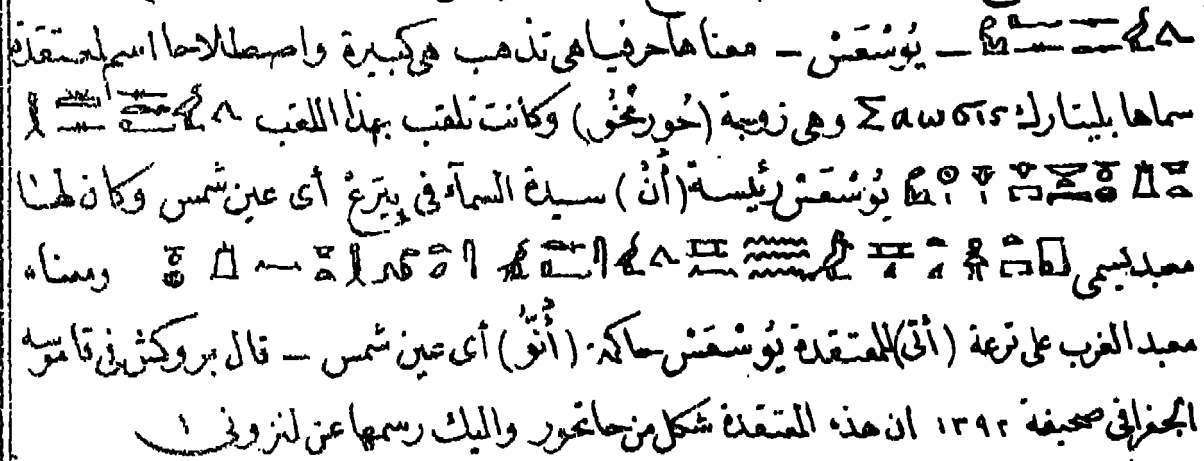 – يُوسْعَسْ – معناها حرفيا هى تذهب هى كبيرة واصطلاحا اسم لمعتقدة
سماها بليتارك Σαωσις وهى زوجة (حُورمخُو) وكانت تلقب بهذا اللقب
يُوسْعَسْ رئيسة (أُنْ) سيدة السمآء فى بِيَرعْ أى عين شمس وكان لها
معبد يسمى ومعناه
معبد الغرب على ترعة (أتى) للمعتقدة يُوسْعَسْ حاكمة (أُنُّو) أى عين شمس – قال بروكش فى قاموسه
الجغرافى صحيفة ١٣٩٢ ان هذه المعتقدة شكل من حاتحور واليك رسمها عن لنزونى